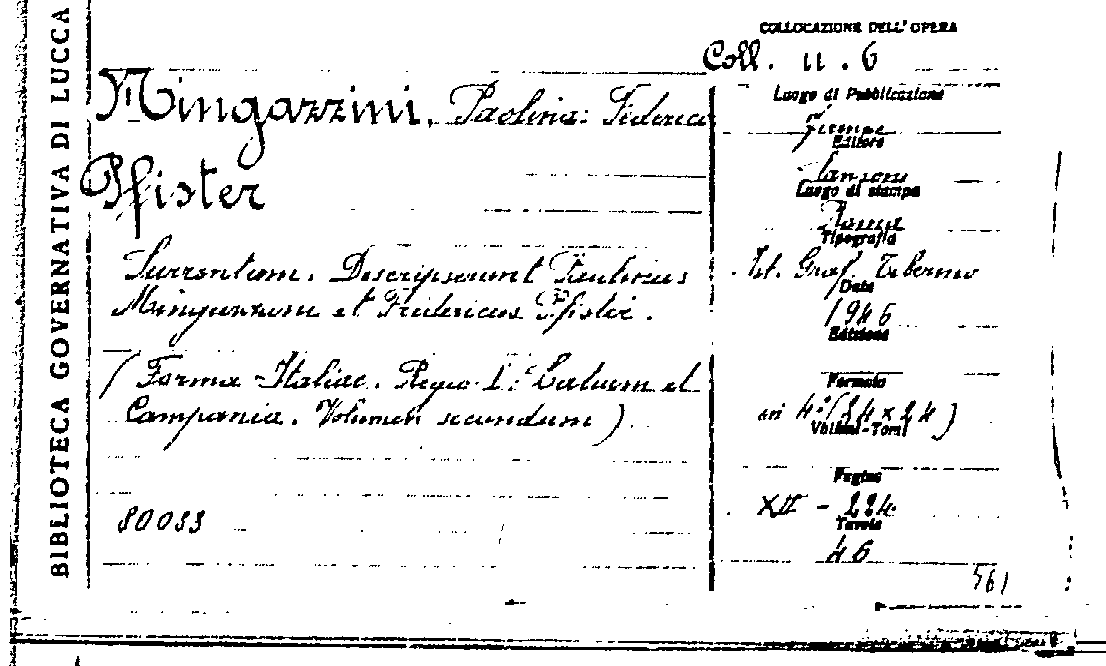 BIBLIOTECA GOVERNATIVA DI LUCCA
COLLOCAZIONE DELL'OPERA
Coll. n. 6
Mingazzini, Paolino: Federico
Pfister
Surrentum. Descripserunt Paulinus
Mingazzini et Fridericus Pfister.
(Forma Italiae. Regio I: Latium et
Campania. Volumen secundum)
80033
Luogo di Pubblicazione
Firenze
Editore
Sansoni
Luogo di stampa
Roma
Tipografia
Ist. Graf. Tiberino
Data
1946
Edizione
Formato
in 4° (24 x 24)
Volumi-Tomi
Pagine
XII - 224
Tavole
46
561